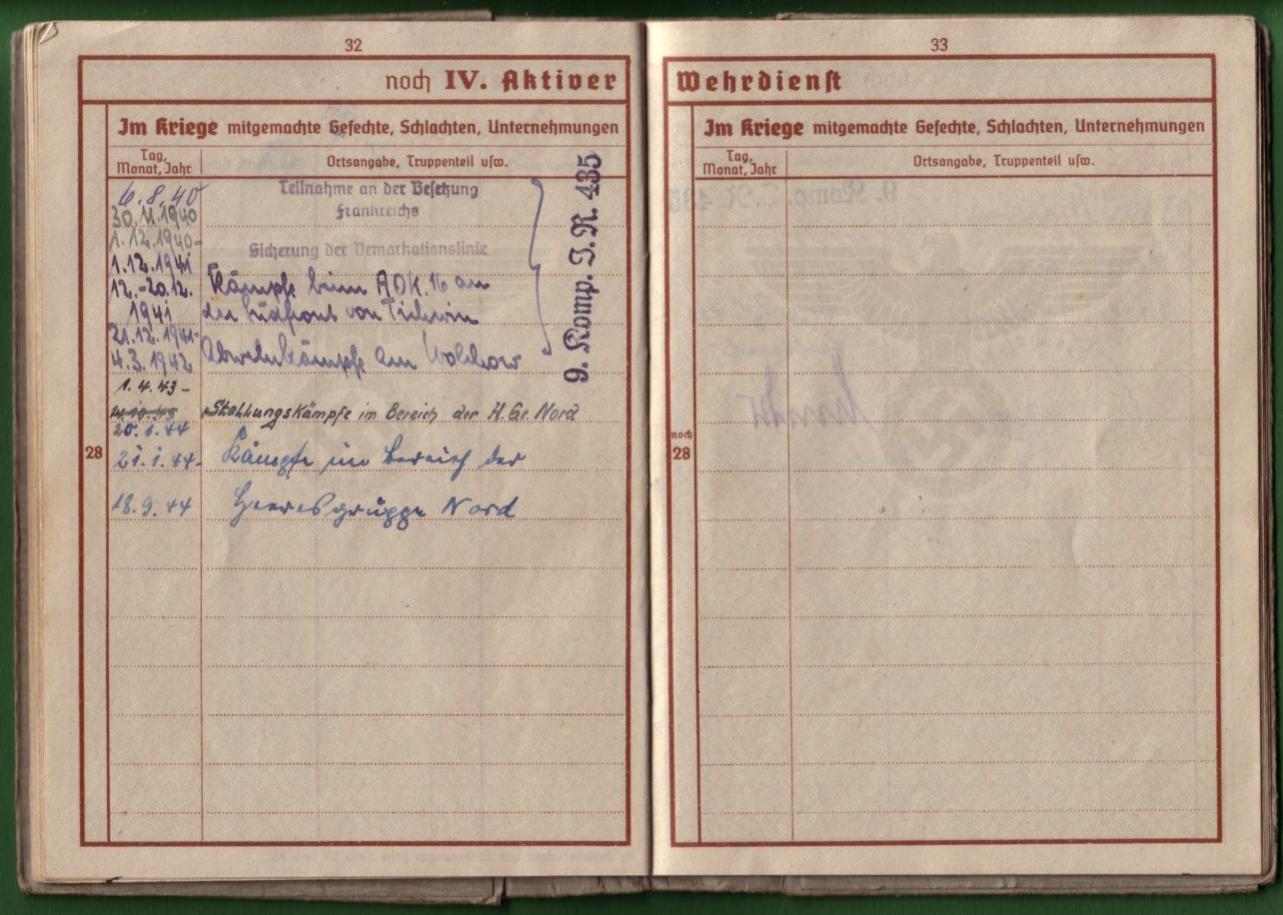 32
noch IV. Aktiver
Im Kriege mitgemachte Gefechte, Schlachten, Unternehmungen
Tag, Monat, Jahr
Ortsangabe, Truppenteil usw.
6.8.40
Teilnahme an der Besetzung
30.11.1940
Frankreichs
1.12.1940-
Sicherung der Demarkationslinie
1.12.1941
12.-20.12.
Kämpfe beim AOK. 16 an
1941
der Südfront von Tichwin
21.12.1941-
4.3.1942
Abwehrkämpfe am Wolchow
9. Komp. I.R. 435
1.4.43-
Stellungskämpfe im Bereich der H.Gr. Nord
20.1.44
28
21.1.44-
Kämpfe im Bereich der
18.9.44
Heeresgruppe Nord
33
Wehrdienst
Im Kriege mitgemachte Gefechte, Schlachten, Unternehmungen
Tag, Monat, Jahr
Ortsangabe, Truppenteil usw.
noch
28